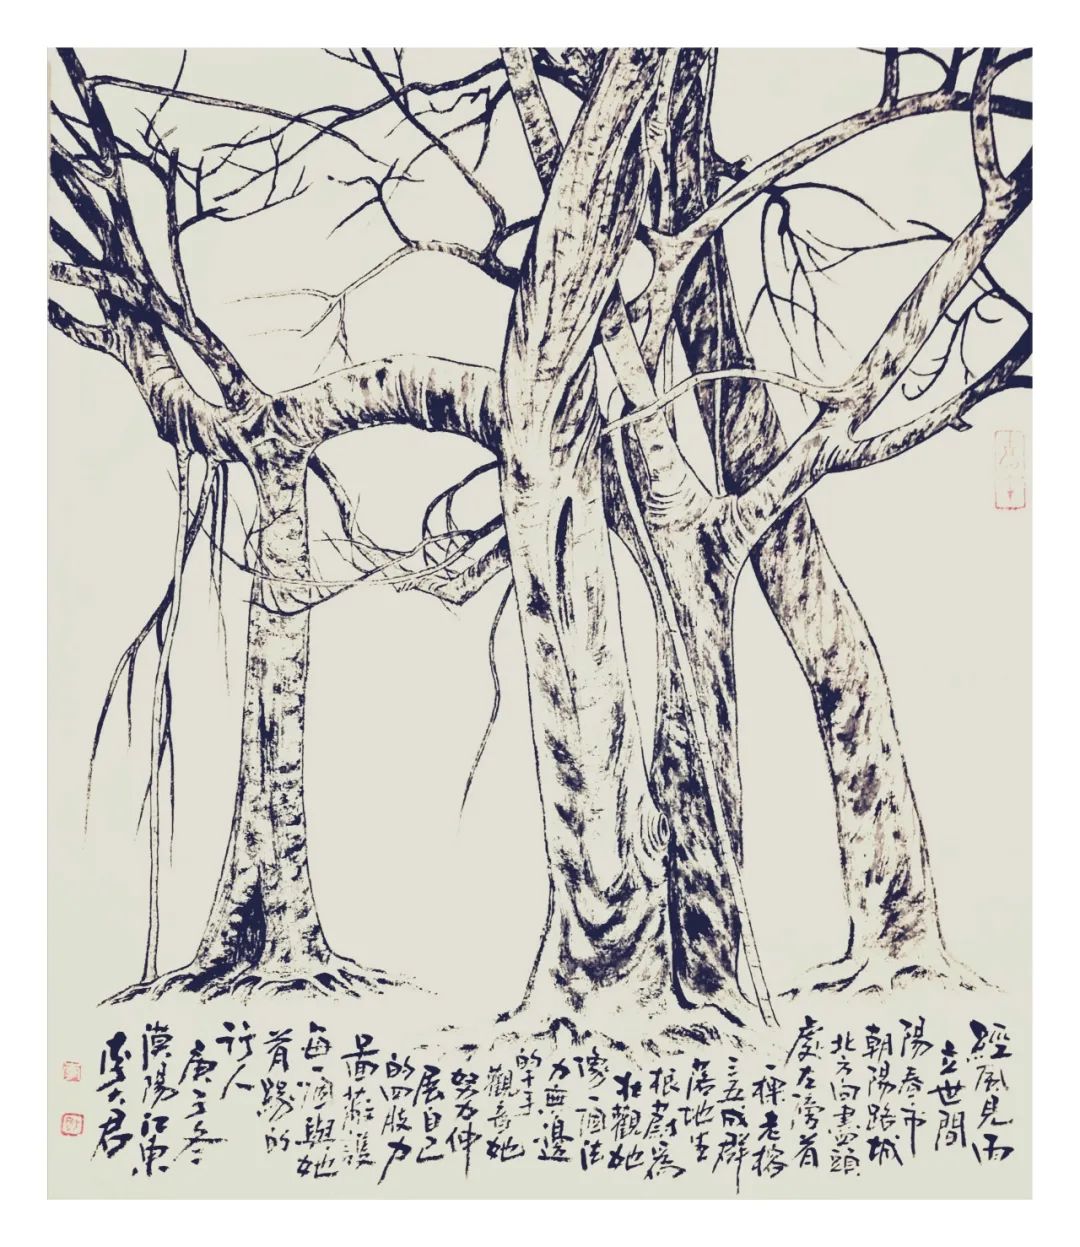 經風見雨
立世間
陽春市
朝陽路城
北方向盡頭
處左旁有
一棵老榕
三五成群
落地生
根蔚為
壯觀她
像一個法
力無邊
的千手
觀音她
努力伸
展自己
的四肢力
圖蔽護
每一個與她
有緣的
行人
庚子冬
漠陽江東